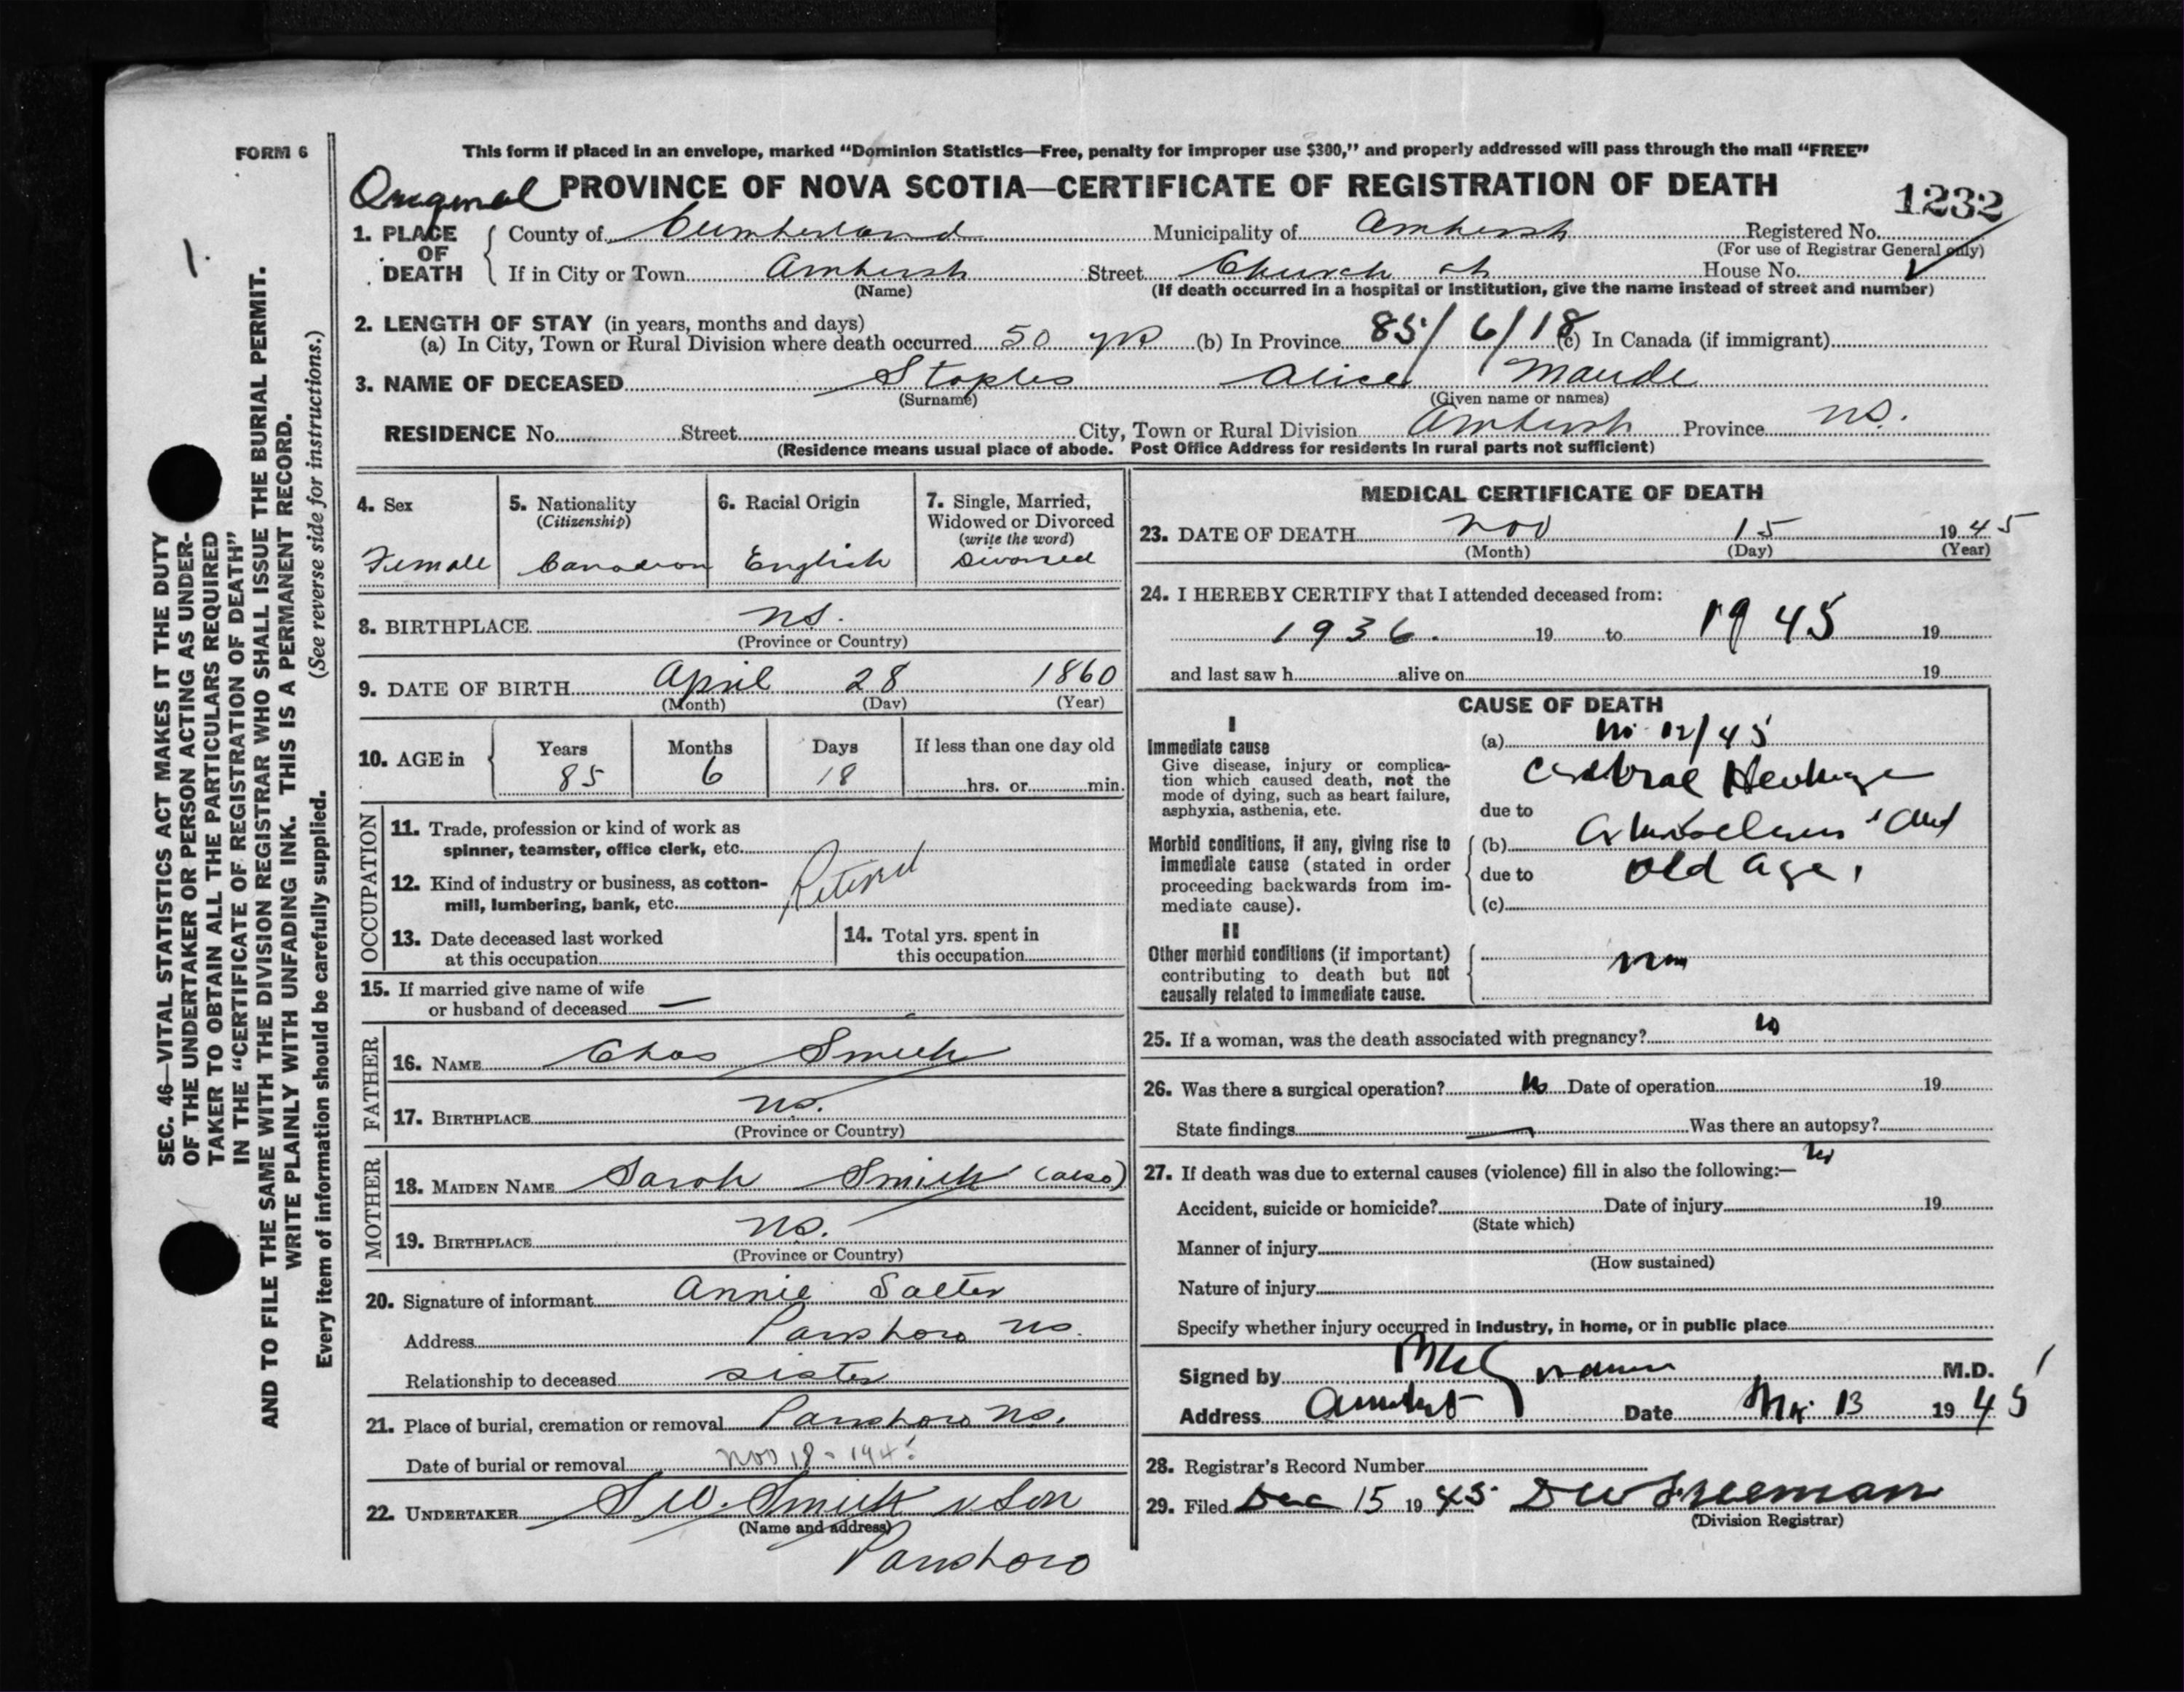 FORM 6
This form if placed in an envelope, marked “Dominion Statistics—Free, penalty for improper use $300,” and properly addressed will pass through the mail “FREE”
Original PROVINCE OF NOVA SCOTIA—CERTIFICATE OF REGISTRATION OF DEATH
1232
1. PLACE OF DEATH
County of Cumberland Municipality of Amherst Registered No.
(For use of Registrar General only)
If in City or Town Amherst Street Church St House No.
(Name) (If death occurred in a hospital or institution, give the name instead of street and number)
2. LENGTH OF STAY (in years, months and days)
(a) In City, Town or Rural Division where death occurred 50 yrs (b) In Province 85/6/18 (c) In Canada (if immigrant)
3. NAME OF DECEASED Staples Alice Maude
(Surname) (Given name or names)
RESIDENCE No. Street City, Town or Rural Division Amherst Province N.S.
(Residence means usual place of abode. Post Office Address for residents in rural parts not sufficient)
4. Sex
Female
5. Nationality
(Citizenship)
Canadian
6. Racial Origin
English
7. Single, Married, Widowed or Divorced
(write the word)
Divorced
8. BIRTHPLACE N.S.
(Province or Country)
9. DATE OF BIRTH April 28 1860
(Month) (Day) (Year)
10. AGE in
Years Months Days If less than one day old
85 6 18 hrs. or min.
OCCUPATION
11. Trade, profession or kind of work as
spinner, teamster, office clerk, etc.
Retired
12. Kind of industry or business, as cotton-
mill, lumbering, bank, etc.
13. Date deceased last worked
at this occupation
14. Total yrs. spent in
this occupation
15. If married give name of wife
or husband of deceased —
FATHER
16. NAME Chas Smith
17. BIRTHPLACE N.S.
(Province or Country)
MOTHER
18. MAIDEN NAME Sarah Smith (also)
19. BIRTHPLACE N.S.
(Province or Country)
20. Signature of informant Annie Salter
Address Parrsboro N.S.
Relationship to deceased sister
21. Place of burial, cremation or removal Parrsboro N.S.
Date of burial or removal Nov 18 - 194
22. UNDERTAKER S W. Smith & Son
(Name and address)
Parrsboro
MEDICAL CERTIFICATE OF DEATH
23. DATE OF DEATH Nov 15 1945
(Month) (Day) (Year)
24. I HEREBY CERTIFY that I attended deceased from:
1936. 19 to 1945 19
and last saw h alive on 19
CAUSE OF DEATH
I
Immediate cause
Give disease, injury or complica-
tion which caused death, not the
mode of dying, such as heart failure,
asphyxia, asthenia, etc.
(a) 12/45
Cerebral
due to
Morbid conditions, if any, giving rise to
immediate cause (stated in order
proceeding backwards from im-
mediate cause).
(b)
due to old age.
(c)
II
Other morbid conditions (if important)
contributing to death but not
causally related to immediate cause.
25. If a woman, was the death associated with pregnancy? no
26. Was there a surgical operation? No Date of operation 19
State findings — Was there an autopsy?
27. If death was due to external causes (violence) fill in also the following:—
Accident, suicide or homicide? Date of injury 19
(State which)
Manner of injury
(How sustained)
Nature of injury
Specify whether injury occurred in industry, in home, or in public place
Signed by M.D.
Address Amherst Date 13 1945
28. Registrar's Record Number
29. Filed Dec 15 1945 D W Freeman
(Division Registrar)
SEC. 46—VITAL STATISTICS ACT MAKES IT THE DUTY
OF THE UNDERTAKER OR PERSON ACTING AS UNDER-
TAKER TO OBTAIN ALL THE PARTICULARS REQUIRED
IN THE “CERTIFICATE OF REGISTRATION OF DEATH”
AND TO FILE THE SAME WITH THE DIVISION REGISTRAR WHO SHALL ISSUE THE BURIAL PERMIT.
WRITE PLAINLY WITH UNFADING INK. THIS IS A PERMANENT RECORD.
Every item of information should be carefully supplied. (See reverse side for instructions.)
1.